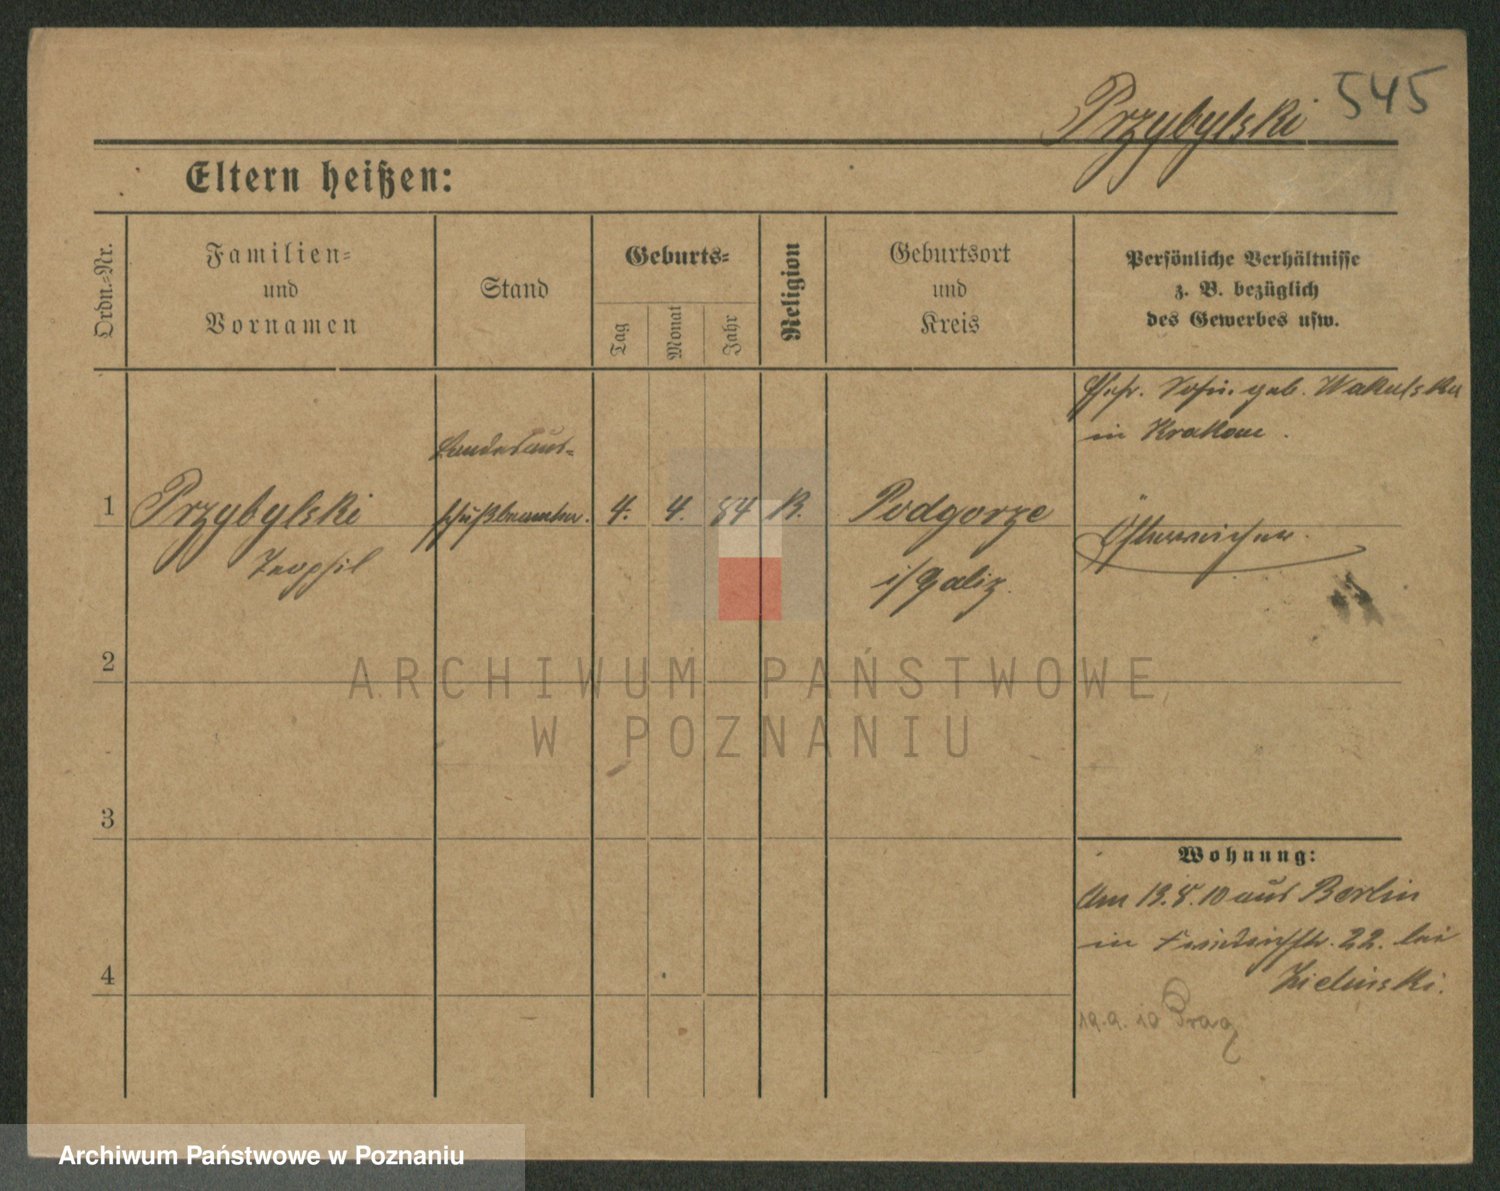 Przybylski 545
Eltern heißen:
Ordn.-Nr.
Familien-
und
Vornamen
Stand
Geburts-
Tag
Monat
Jahr
Religion
Geburtsort
und
Kreis
Persönliche Verhältnisse
z. B. bezüglich
des Gewerbes usw.
geb. Wakulska
in Krakau.
Landesaus-
1 Przybylski schußbeamter. 4. 4. 84 K. Podgorze
Teophil
i/Galiz.
Österreicher.
2
3
4
ARCHIWUM PAŃSTWOWE
W POZNANIU
Wohnung:
Am 13.8.10 aus Berlin
in Friedrichstr. 22. bei
Zielinski.
19.9.10 Prag
Archiwum Państwowe w Poznaniu